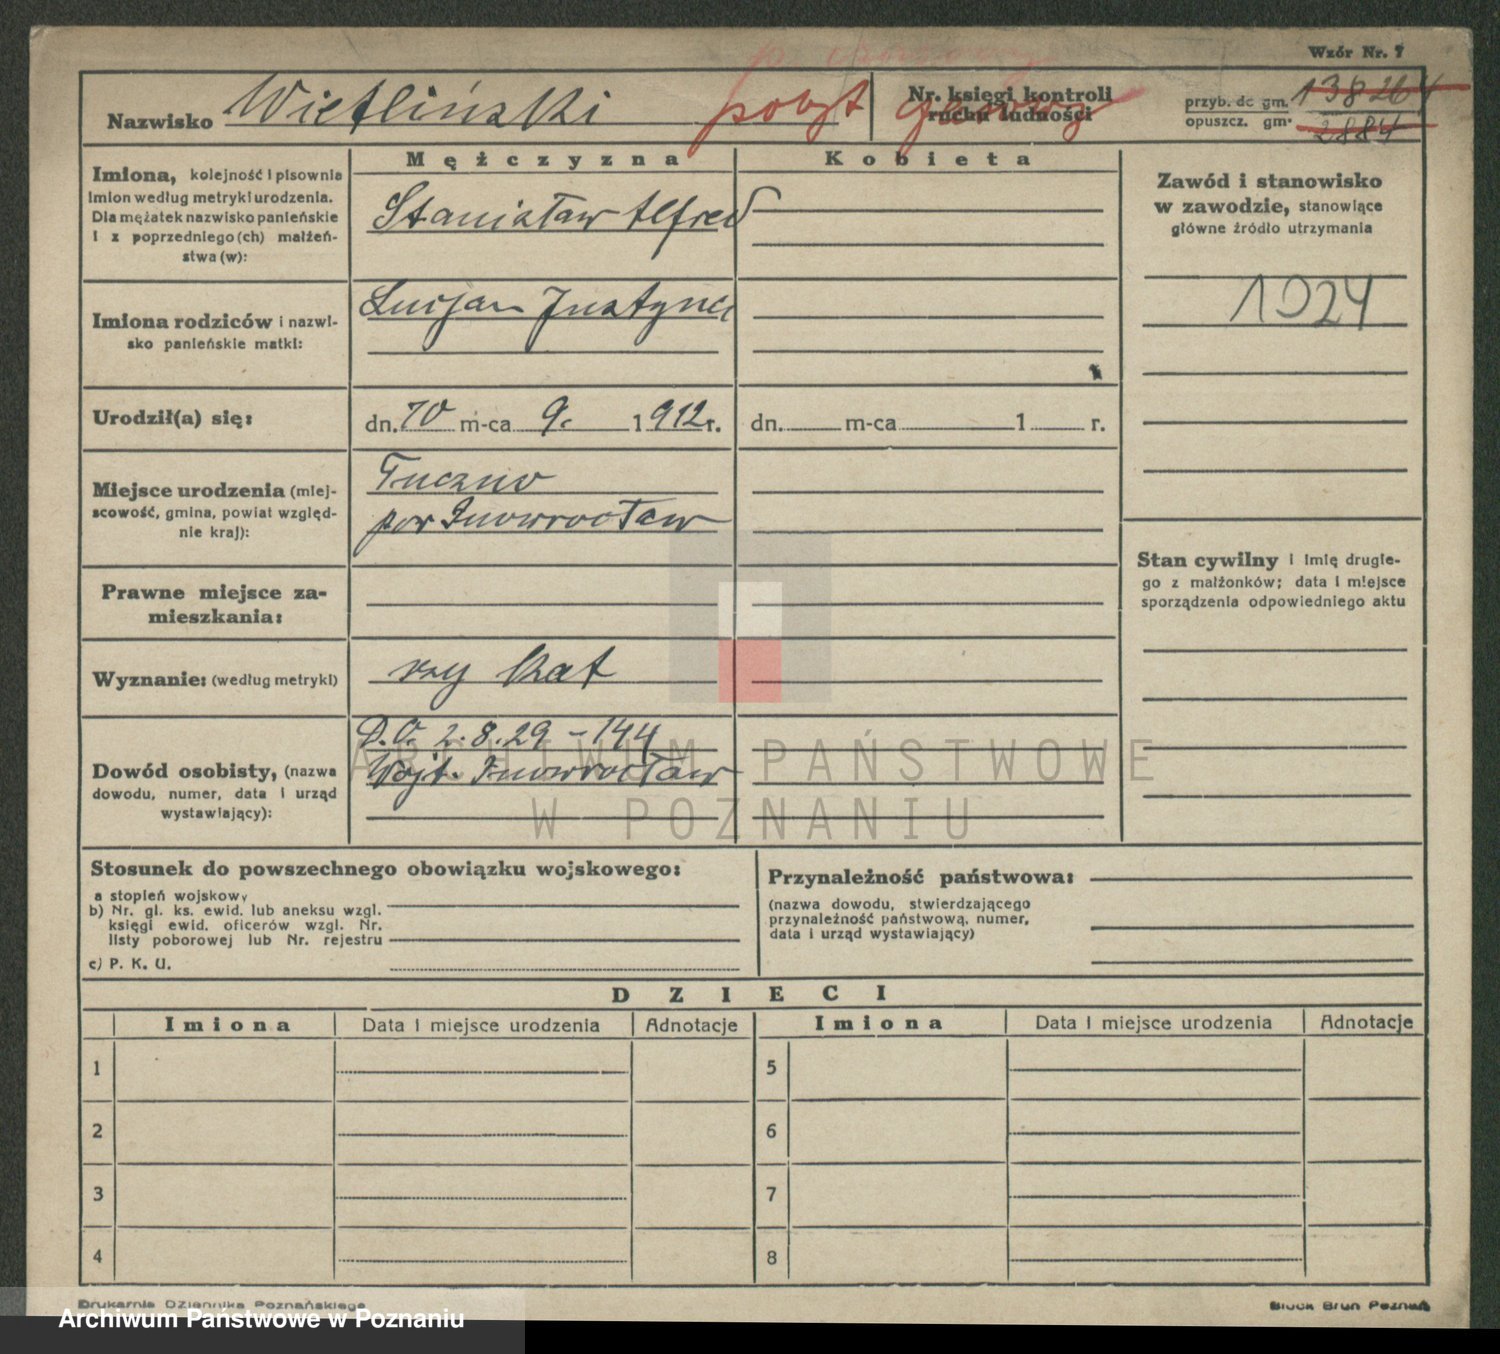 Wzór Nr. 7
Nazwisko Wietliński pobyt czasowy
Nr. księgi kontroli ruchu ludności
przyb. do gm. 138264
opuszcz. gm. 2884
Mężczyzna Kobieta
Imiona, kolejność i pisownia
imion według metryki urodzenia.
Dla mężatek nazwisko panieńskie
i z poprzedniego (ch) małżeń-
stwa (w):
Stanisław Alfred
Zawód i stanowisko
w zawodzie, stanowiące
główne źródło utrzymania
1924
Imiona rodziców i nazwi-
sko panieńskie matki:
Lucjan Justyna
Urodził(a) się:
dn. 10 m-ca 9. 1912 r.
dn. m-ca 1 r.
Miejsce urodzenia (miej-
scowość, gmina, powiat względ-
nie kraj):
Tuczno
pow Inowrocław
Prawne miejsce za-
mieszkania:
Stan cywilny i imię drugie-
go z małżonków; data i miejsce
sporządzenia odpowiedniego aktu
Wyznanie: (według metryki)
rzy kat
Dowód osobisty, (nazwa
dowodu, numer, data i urząd
wystawiający):
D.O. 2.8.29 – 144
Wojt. Inowrocław
ARCHIWUM PAŃSTWOWE
W POZNANIU
Stosunek do powszechnego obowiązku wojskowego:
a stopień wojskowy
b) Nr. gl. ks. ewid. lub aneksu wzgl.
księgi ewid. oficerów wzgl. Nr.
listy poborowej lub Nr. rejestru
c) P. K. U.
Przynależność państwowa:
(nazwa dowodu, stwierdzającego
przynależność państwową, numer,
data i urząd wystawiający)
DZIECI
Imiona Data i miejsce urodzenia Adnotacje Imiona Data i miejsce urodzenia Adnotacje
1 5
2 6
3 7
4 8
Drukarnia Dziennika Poznańskiego
Block Brun Poznań
Archiwum Państwowe w Poznaniu